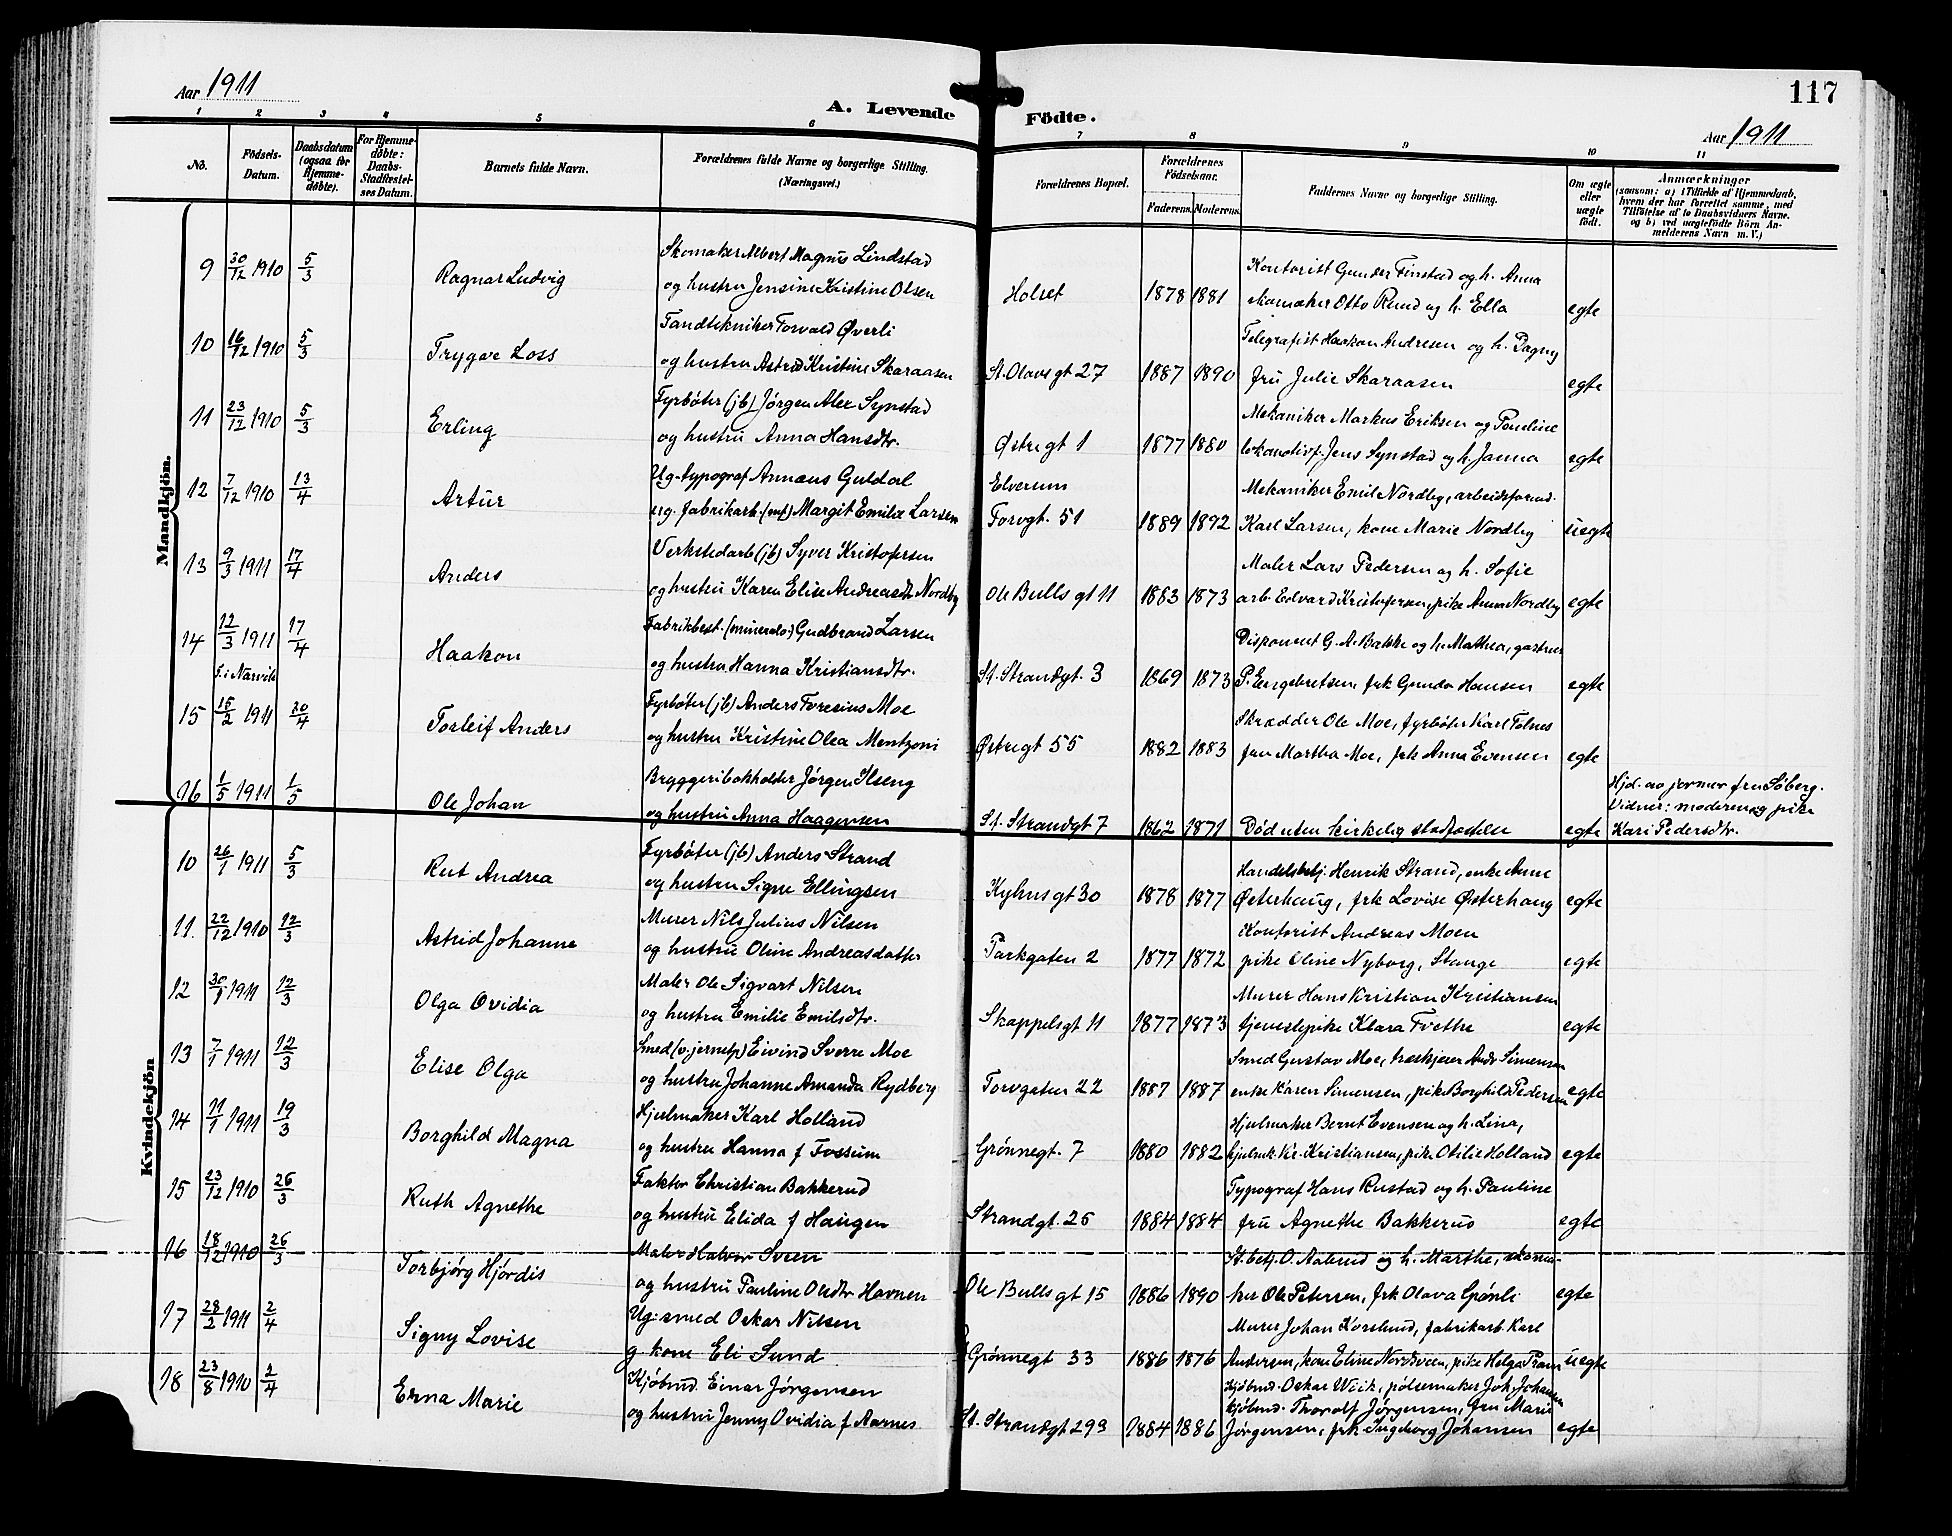 Aar 1911
A. Levende Födte.
117
Aar 1911
1 2 3 4 5 6 7 8 9 10 11
No.
Födsels-Datum.
Daabsdatum (ogsaa for Hjemme-döbte).
For Hjemme-döbte: Daabs-Stadfæstel-ses Datum.
Barnets fulde Navn.
Forældrenes fulde Navne og borgerlige Stilling. (Næringsvei.)
Forældrenes Bopæl.
Forældrenes Födselsaar.
Faderens. Moderens.
Faddernes Navne og borgerlige Stilling.
Om ægte eller uægte födt.
Anmærkninger
(saasom: a) i Tilfælde af Hjemmedaab,
hvem der har forrettet samme, med
Tilföielse af to Daabsvidners Navne.
og b) ved uægtefödte Börn An-
melderens Navn m. V.)
Mandkjön.
9 30/12 1910 5/3 Ragnar Ludvig
Skomaker Albert Magnus Lindstad
og hustru Jensine Kristine Olsen
Holset 1878 1881
Kontorist Gunder Finstad og h. Anna
skomaker Otto Rund og h. Ella
egte
10 16/12 1910 5/3 Trygve Loss
Tandtekniker Torvald Øverli
og hustru Astrid Kristine Skaraasen
St. Olavs gt 27 1887 1890
Telegrafist Haakon Andresen og h. Dagny
fru Julie Skaraasen
egte
11 23/12 1910 5/3 Erling
Fyrbøter (jb) Jørgen Aler Synstad
og hustru Anna Hansdtr.
Østregt 1 1877 1880
Mekaniker Markus Eriksen og Pauline
lokomotivf. Jens Synstad og h. Janna
egte
12 7/12 1910 13/4 Artur
Ug. typograf Annæus Guldal
ug. fabrikarb. Margit Emilie Larsen
Elverum
Torvgt. 51 1889 1892
Mekaniker Emil Nordby, arbeidsformd.
Karl Larsen, kone Marie Nordby
uegte
13 9/3 1911 17/4 Anders
Verkstedarb (jb) Syver Kristofersen
og hustru Karen Elise Andreasdtr Nordby
Ole Bulls gt 11 1883 1873
Maler Lars Pedersen og h. Sofie
arb. Edvard Kristofersen, pike Anna Nordby
egte
14 12/3 1911 17/4 Haakon
F. i Narvik
Fabrikbest. Gudbrand Larsen
og hustru Hanna Kristiansdtr.
St. Strandgt. 3 1869 1873
Disponent G. A. Bakke og h. Mathea,
P. Engebretsen, frk Gunda Hansen
egte
15 15/2 1911 30/4 Torleif Anders
Fyrbøter (jb) Anders Toresius Moe
og hustru Kristine Olea Mentzoni
Østregt 55 1882 1883
Skrædder Ole Moe, fyrbøter Karl Tolnes
fru Martha Moe, frk Anna Evensen
egte
16 1/5 1911 1/5 Ole Johan
Bryggeribokholder Jørgen Ilseng
og hustru Anna Haagensen
St. Strandgt 7 1862 1871
Død uten kirkelig stadfæstelse
egte
Hjd. av jormor fru Søberg.
Vidner: moderen og pike
Kari Pedersdtr.
Kvindekjön
10 26/1 1911 5/3 Rut Andrea
Fyrbøter (jb) Anders Strand
og hustru Signe Ellingsen
Kyhns gt 30 1878 1877
Handelsbetj. Henrik Strand, enke Anne
Østerhaug, frk Lovise Østerhaug
egte
11. 22/12 1910 12/3 Astrid Johanne
Murer Nils Julius Nilsen
og hustru Oline Andreasdatter
Parkgaten 2 1877 1872
Kontorist Andreas Moen
pike Oline Nyborg, Stange
egte
12 30/1 1911 12/3 Olga Ovidia
Maler Ole Sigvart Nilsen
og hustru Emilie Emilsdtr.
Skappelsgt 11 1877 1873
Murer Hans Kristian Kristiansen
tjenestepike Klara Tvethe
egte
13 7/1 1911 12/3 Elise Olga
Smed (v. jernstp) Eivind Sverre Moe
og hustru Johanne Amanda Rydberg
Torvgaten 22 1887 1887
Smed Gustav Moe, træskjærer Andr. Simensen
enke Karen Simensen, pike Borghild Pedersen
egte
14 11/1 1911 19/3 Borghild Magna
Hjulmaker Karl Holland
og hustru Hanna f Fossum
Grønnegt. 7 1880 1882
Hjulmaker Bernt Evensen og h. Lina,
hjulmk. Kr. Kristiansen, pike Otilie Holland
egte
15 23/12 1910 26/3 Ruth Agnethe
Faktor Christian Bakkerud
og hustru Elida f Haugen
Strandgt. 26 1884 1884
Typograf Hans Rustad og h. Pauline
fru Agnethe Bakkerud
egte
16 18/12 1910 26/3 Torbjørg Hjørdis
Maler Halvor Sveen
og hustru Pauline Olsdtr. Havnen
Ole Bulls gt 15 1886 1890
St. betj. O. Aalerud og h. Marthe, skoma-
ker Ole Petersen, frk Olava Grønli
egte
17 28/2 1911 2/4 Signy Lovise
Ug: smed Oskar Nilsen
g. kone Eli Sund
Grønnegt 33 1886 1876
Murer Johan Korslund, fabrikarb Karl
Andersen, kone Eline Nordsveen, pike Helga
uegte
18 23/8 1910 2/4 Erna Marie
Kjøbmd. Einar Jørgensen
og hustru Jenny Ovidia f Aarnes
St. Strandgt 29 1884 1886
Kjøbmd. Oskar Wiik, pølsemaker Joh. Johansen
kjøbmd. Thorolf Jørgensen, fru Marie
Jørgensen, frk Ingeborg Johansen
egte